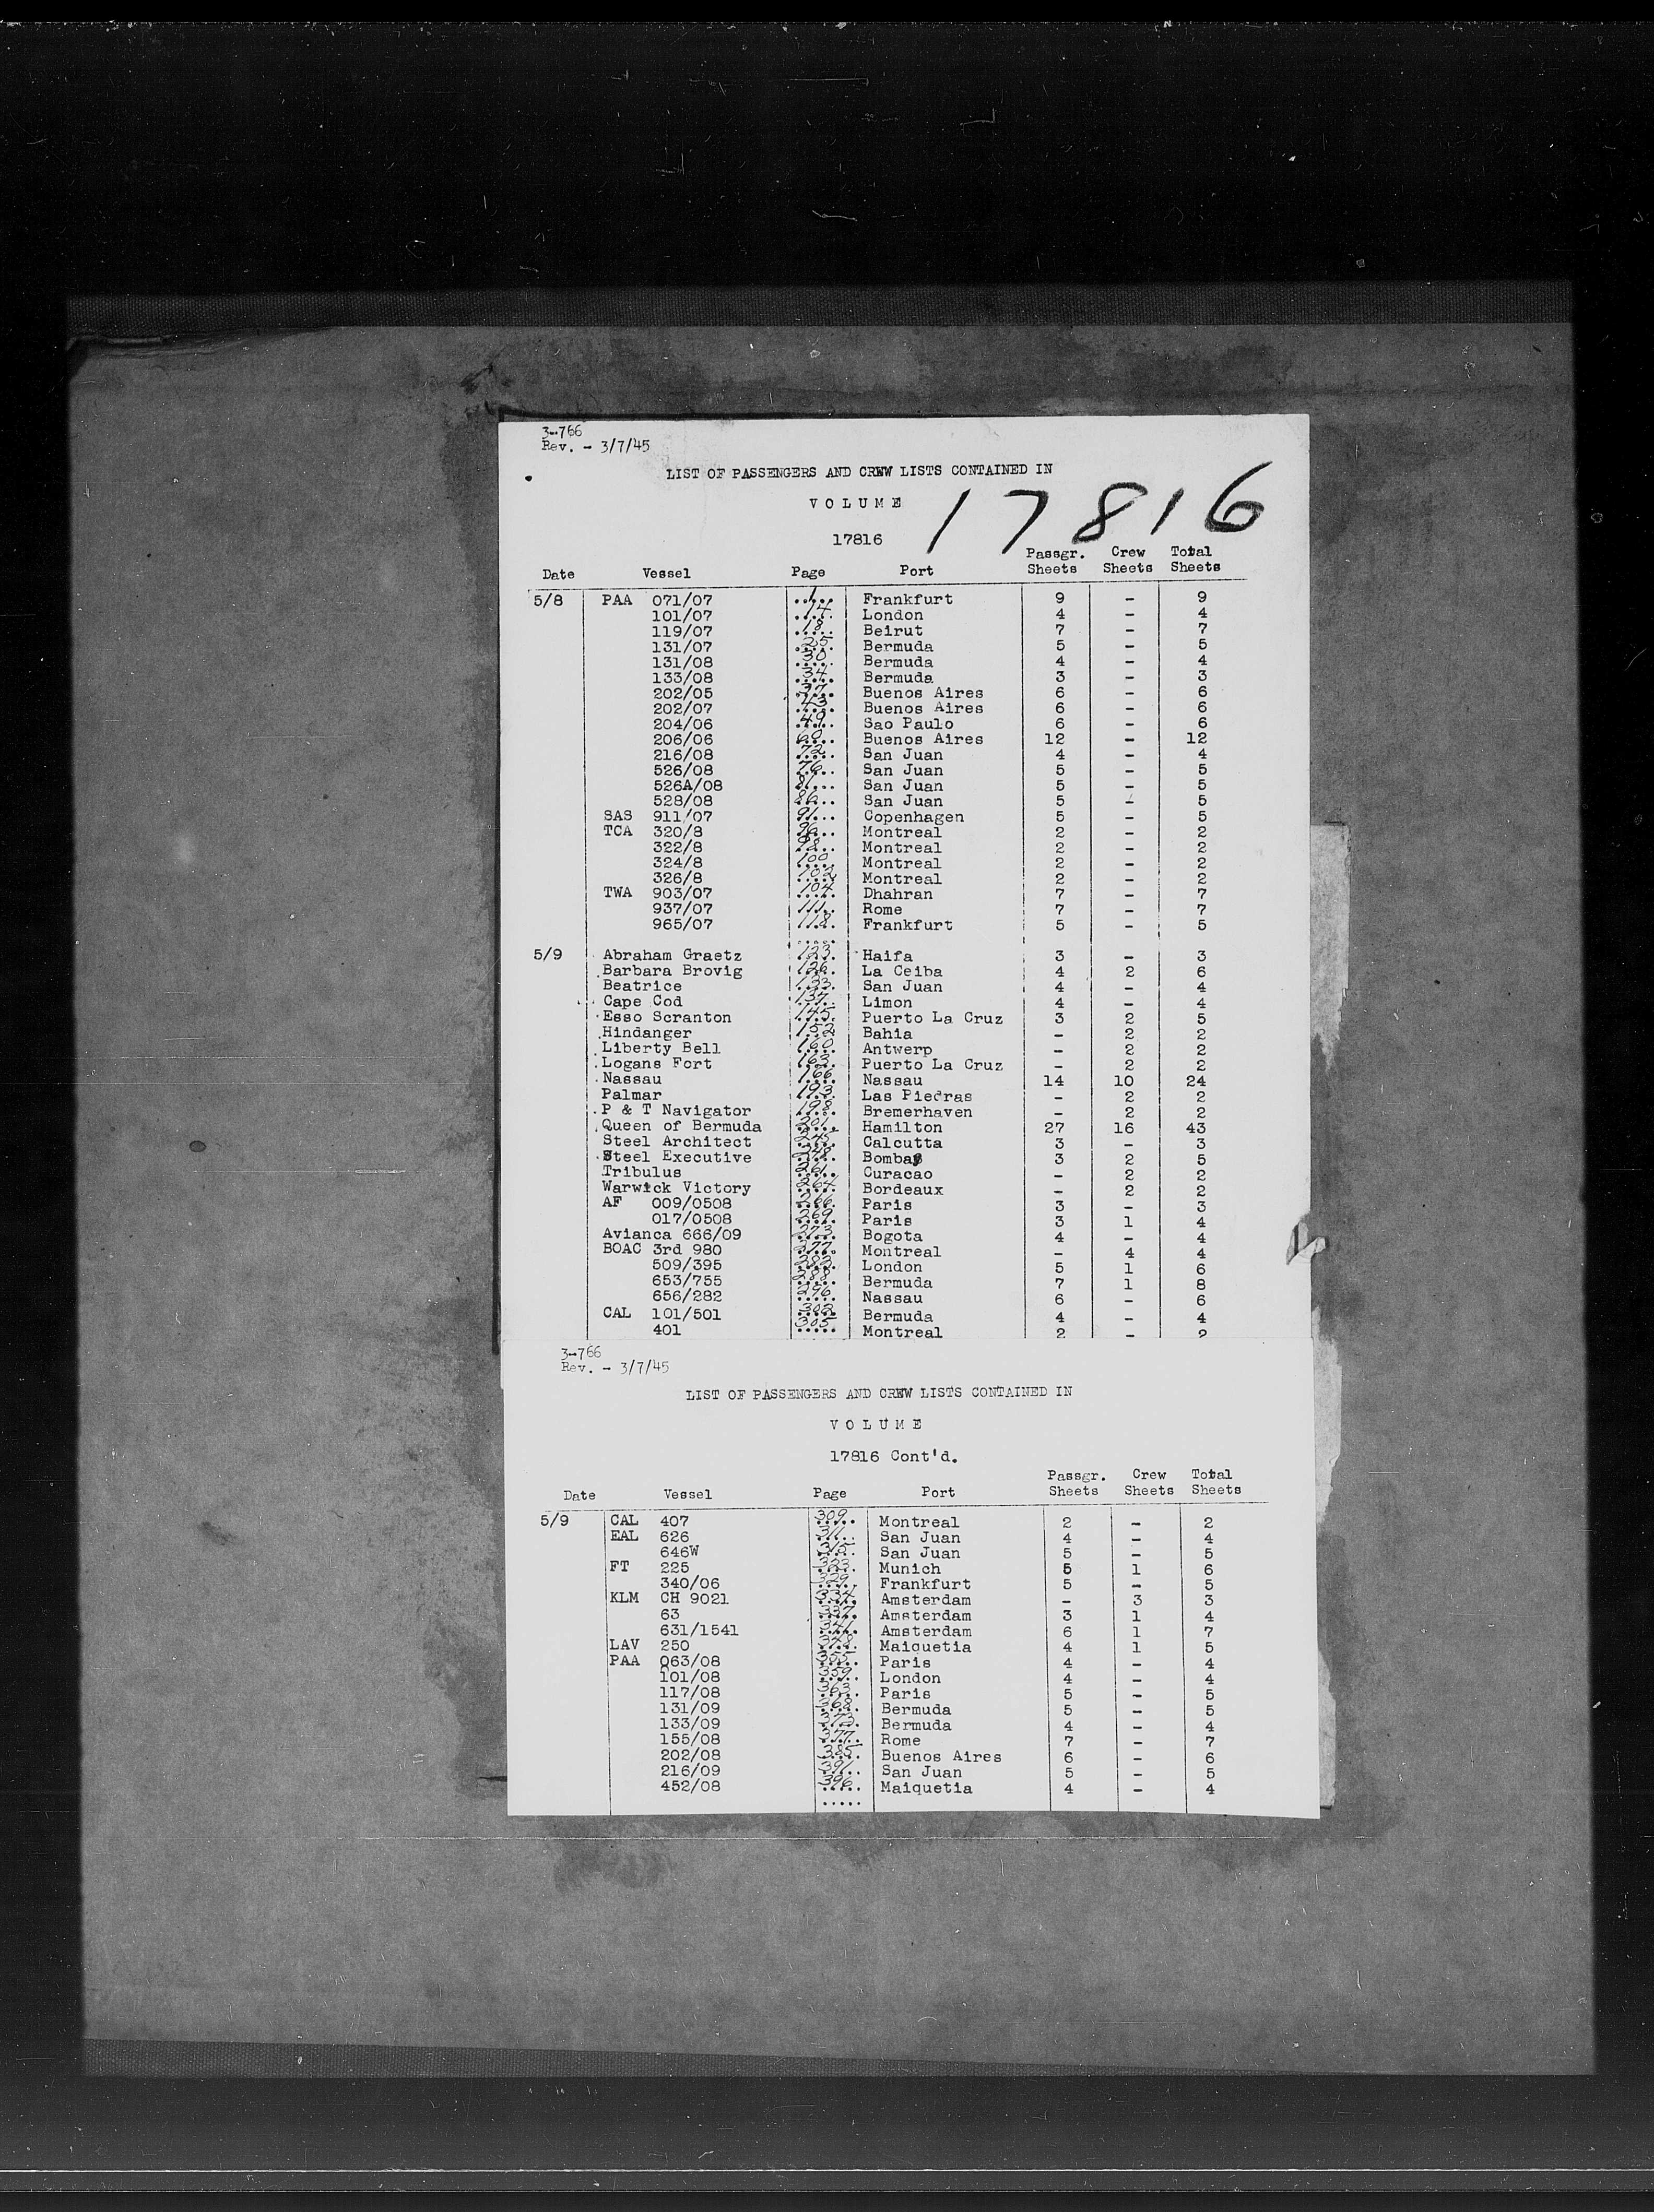 3-766
Rev. - 3/7/45
LIST OF PASSENGERS AND CREW LISTS CONTAINED IN
VOLUME
17816
17816
Date Vessel Page Port Passgr. Sheets Crew Sheets Total Sheets
5/8 PAA 071/07 1 Frankfurt 9 - 9
101/07 14 London 4 - 4
119/07 18 Beirut 7 - 7
131/07 25 Bermuda 5 - 5
131/08 30 Bermuda 4 - 4
133/08 34 Bermuda 3 - 3
202/05 37 Buenos Aires 6 - 6
202/07 43 Buenos Aires 6 - 6
204/06 49 Sao Paulo 6 - 6
206/06 60 Buenos Aires 12 - 12
216/08 72 San Juan 4 - 4
526/08 76 San Juan 5 - 5
526A/08 81 San Juan 5 - 5
528/08 86 San Juan 5 - 5
SAS 911/07 91 Copenhagen 5 - 5
TCA 320/8 96 Montreal 2 - 2
322/8 98 Montreal 2 - 2
324/8 100 Montreal 2 - 2
326/8 102 Montreal 2 - 2
TWA 903/07 104 Dhahran 7 - 7
937/07 111 Rome 7 - 7
965/07 118 Frankfurt 5 - 5
5/9 Abraham Graetz 123 Haifa 3 - 3
Barbara Brovig 126 La Ceiba 4 2 6
Beatrice 133 San Juan 4 - 4
Cape Cod 137 Limon 4 - 4
Esso Scranton 145 Puerto La Cruz 3 2 5
Hindanger 152 Bahia - 2 2
Liberty Bell 160 Antwerp - 2 2
Logans Fort 163 Puerto La Cruz - 2 2
Nassau 166 Nassau 14 10 24
Palmar 193 Las Piedras - 2 2
P & T Navigator 198 Bremerhaven - 2 2
Queen of Bermuda 201 Hamilton 27 16 43
Steel Architect 245 Calcutta 3 - 3
Steel Executive 248 Bombay 3 2 5
Tribulus 261 Curacao - 2 2
Warwick Victory 264 Bordeaux - 2 2
AF 009/0508 266 Paris 3 - 3
017/0508 269 Paris 3 1 4
Avianca 666/09 273 Bogota 4 - 4
BOAC 3rd 980 277 Montreal - 4 4
509/395 282 London 5 1 6
653/755 288 Bermuda 7 1 8
656/282 296 Nassau 6 - 6
CAL 101/501 302 Bermuda 4 - 4
401 305 Montreal 2 - 2
3-766
Rev. - 3/7/45
LIST OF PASSENGERS AND CREW LISTS CONTAINED IN
VOLUME
17816 Cont'd.
Date Vessel Page Port Passgr. Sheets Crew Sheets Total Sheets
5/9 CAL 407 309 Montreal 2 - 2
EAL 626 311 San Juan 4 - 4
646W 315 San Juan 5 - 5
FT 225 323 Munich 5 1 6
340/06 329 Frankfurt 5 - 5
KLM CH 9021 334 Amsterdam - 3 3
63 337 Amsterdam 3 1 4
631/1541 341 Amsterdam 6 1 7
LAV 250 348 Maiquetia 4 1 5
PAA 063/08 355 Paris 4 - 4
101/08 359 London 4 - 4
117/08 363 Paris 5 - 5
131/09 368 Bermuda 5 - 5
133/09 373 Bermuda 4 - 4
155/08 377 Rome 7 - 7
202/08 385 Buenos Aires 6 - 6
216/09 391 San Juan 5 - 5
452/08 396 Maiquetia 4 - 4